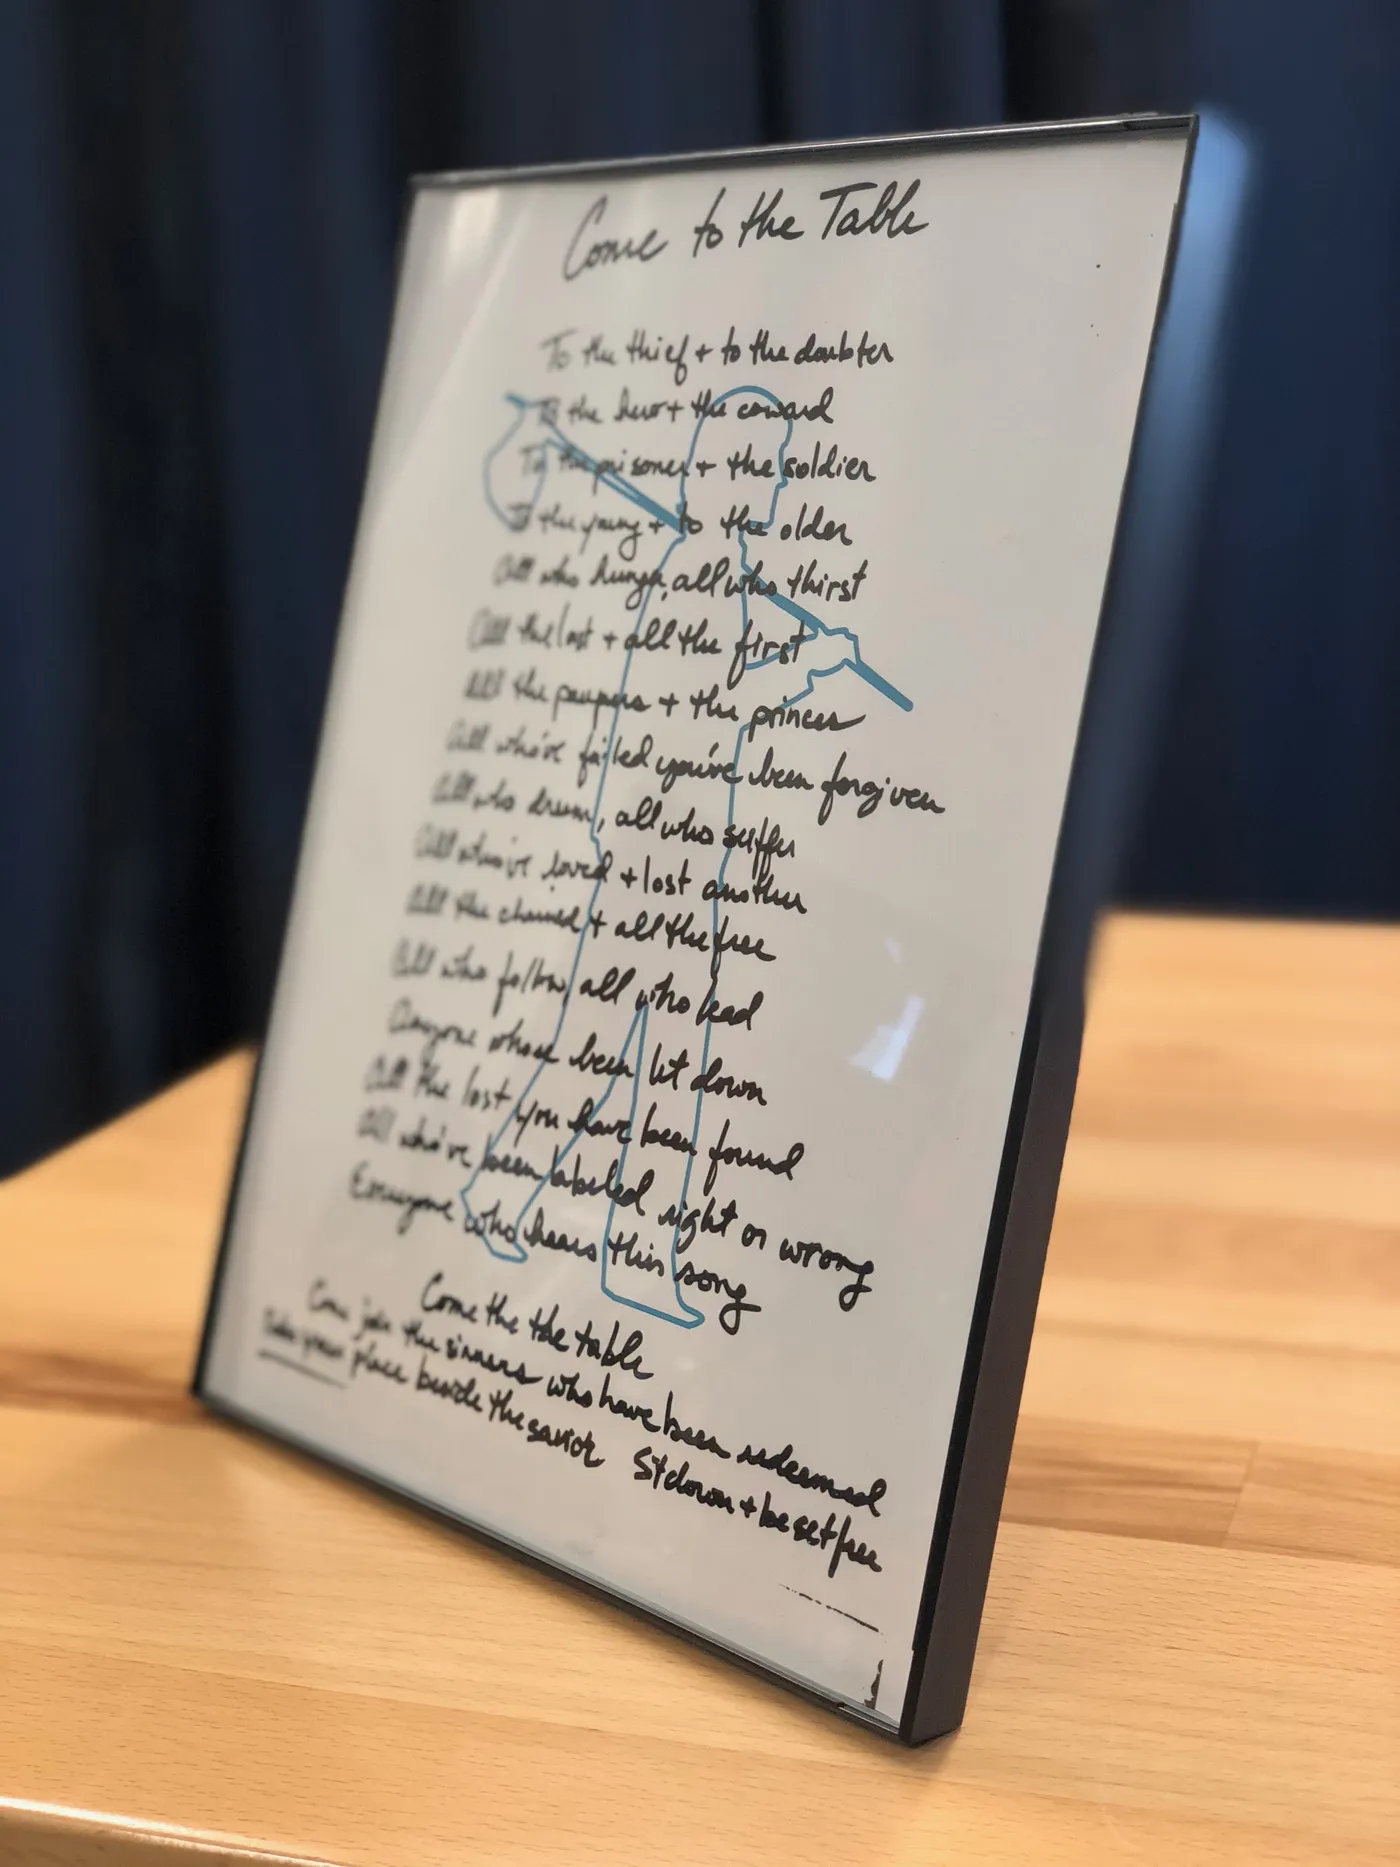 Come to the Table
To the thief + to the doubter
To the hero + the coward
To the prisoner + the soldier
To the young + to the older
All who hunger, all who thirst
All the last + all the first
All the paupers + the princes
All who've failed you've been forgiven
All who dream, all who suffer
All who've loved + lost another
All the chained + all the free
All who follow, all who lead
Anyone whose been let down
All the lost you have been found
All who've been labeled right or wrong
Everyone who hears this song
Come the the table
Come join the sinners who have been redeemed
Take your place beside the savior Sit down + be set free